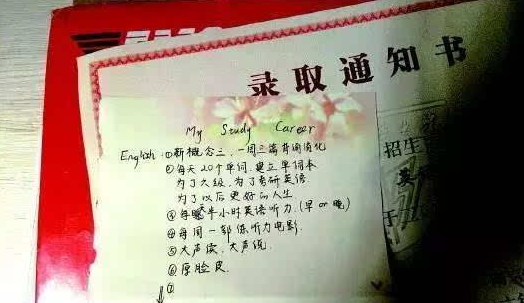 录取通知书
招生
My Study Career
English ①新概念三,一周二篇背诵消化
②每天20个单词,建立单词本
为了六级,为了考研英语
为了以后更好的人生
③每天半小时英语听力.(早or晚)
④每周一部练听力电影.
⑤大声读,大声说.
⑥厚脸皮.
⑦